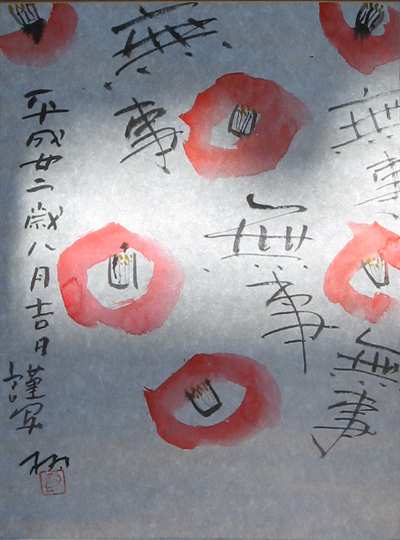 無事
無事
無事
無事
平成廿二歳八月吉日
謹写